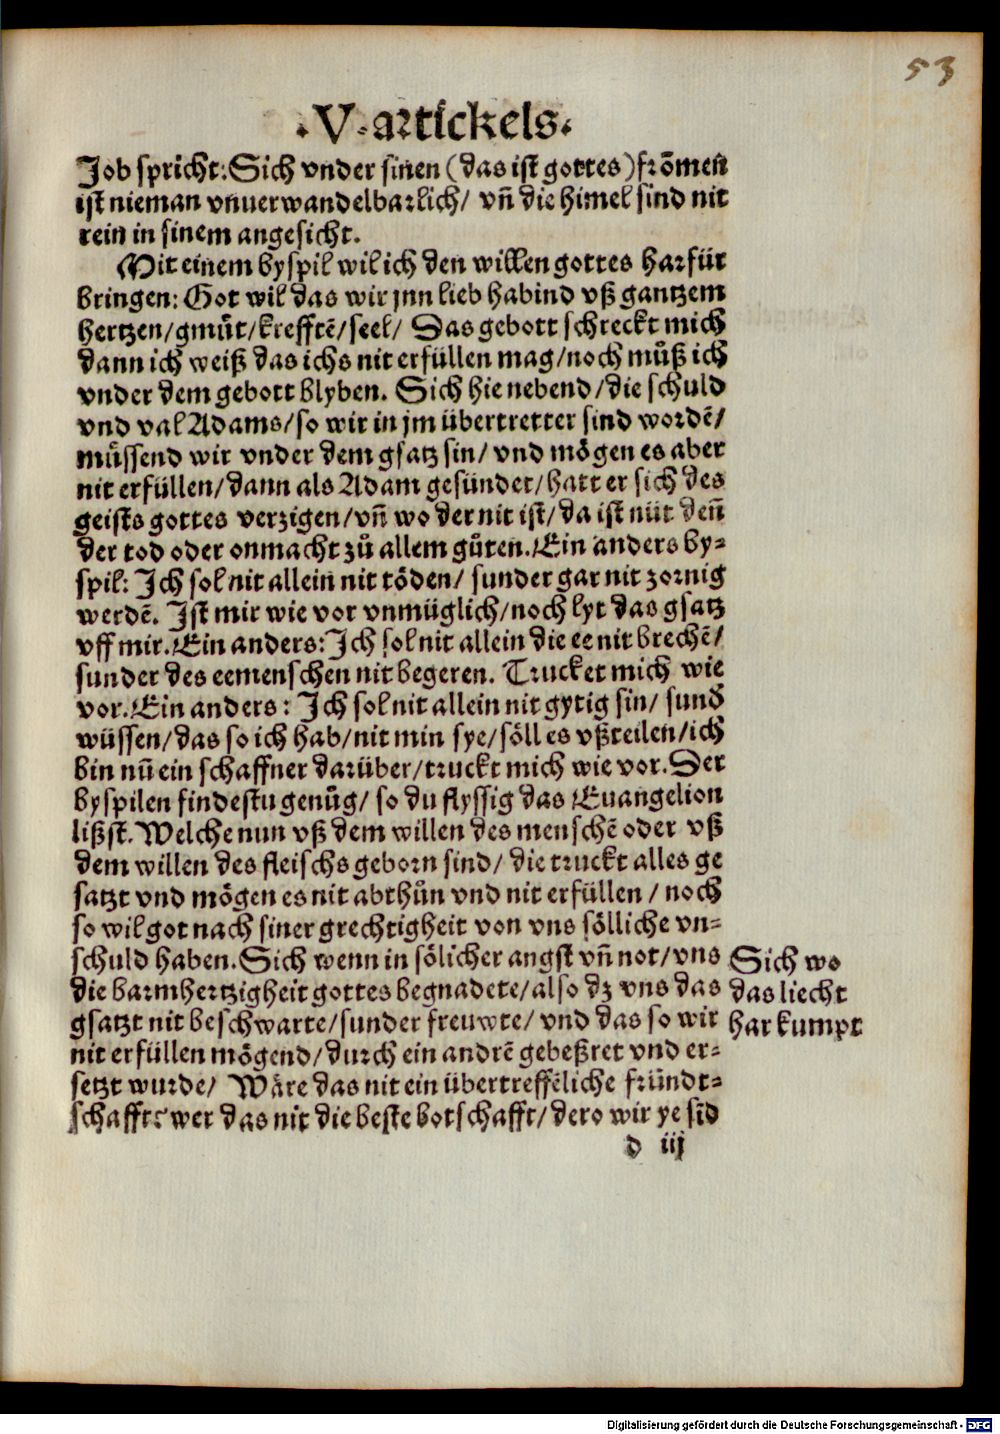 53
.V. artickels.
Job spricht: Sich vnder sinen (das ist gottes) frõmen
ist nieman vnuerwandelbarlich/ vñ die himel sind nit
rein in sinem angesicht.
Mit einem byspil wil ich den willen gottes harfür
bringen: Got wil das wir jnn lieb habind vß gantzem
hertzen/ gmuͤt/ kreffтẽ/ seel/ Das gebott schreckt mich
dann ich weiß das ichs nit erfüllen mag/ noch muͦß ich
vnder dem gebott blyben. Sich hie nebend/ die schuld
vnd val Adams/ so wir in jm übertretter sind wordẽ/
muͤssend wir vnder dem gsatz sin/ vnd moͤgen es aber
nit erfüllen/ dann als Adam gesündet/ hatt er sich des
geists gottes verzigen/ vñ wo der nit ist/ da ist nüt deñ
der tod oder onmacht zuͦ allem guͦten. Ein anders by⸗
spil: Ich sol nit allein nit töden/ sunder gar nit zornig
werdẽ. Ist mir wie vor vnmüglich/ noch lyt das gsatz
vff mir. Ein anders: Ich sol nit allein die ee nit brechẽ/
sunder des eemenschen nit begeren. Trucket mich wie
vor. Ein anders: Ich sol nit allein nit gytig sin/ sund
wüssen/ das so ich hab/ nit min sye/ söll es vßteilen/ ich
bin nũ ein schaffner darüber/ truckt mich wie vor. Der
byspilen findestu genuͦg/ so du flyssig das Euangelion
lißst. Welche nun vß dem willen des menschẽ oder vß
dem willen des fleischs geborn sind/ die truckt alles ge
satzt vnd moͤgen es nit abthuͦn vnd nit erfüllen/ noch
so wil got nach siner grechtigheit von vns soͤlliche vn⸗
schuld haben. Sich wenn in soͤlicher angst vñ not/ vns
die barmhertzigheit gottes begnadete/ also dz vns das
gsatzt nit beschwarte/ sunder freuwte/ vnd das so wir
nit erfüllen moͤgend/ durch ein andrẽ gebeßret vnd er⸗
setzt wurde/ Waͤre das nit ein übertreffẽliche fründt⸗
schafft? wer das nit die beste botschafft/ dero wir ye sĩd
Sich wo
das liecht
har kumpt
d iij
Digitalisierung gefördert durch die Deutsche Forschungsgemeinschaft - DFG